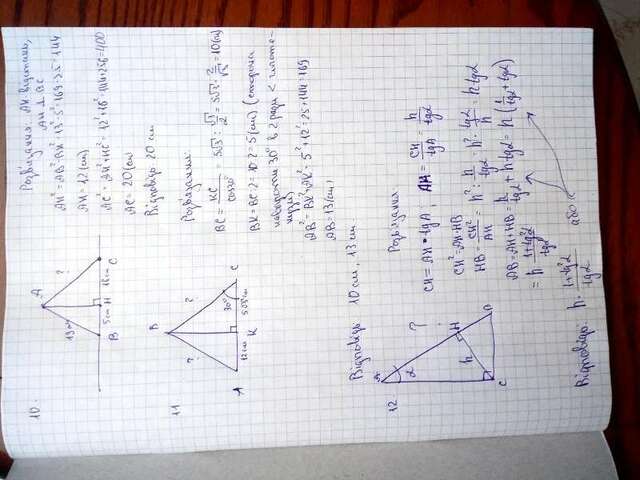 10.
Розвязання. AH відстань,
AH ⊥ BC
AH² = AB² - BH² = 13² - 5² = 169 - 25 = 144
AH = 12 (cm)
AC² = AH² + HC² = 12² + 16² = 144 + 256 = 400
AC = 20 (cm)
Відповідь 20 см
A
13см
?
B
5см
H
16см
C
11
Розвязання:
BC = KC / cos30° = 5√3 : √3/2 = 5√3 · 2/√3 = 10(см)
BK = BC : 2 = 10 : 2 = 5 (см) (сторона
навпроти 30° в 2 рази < гіпоте-
нузи)
AB² = BK² + AK² = 5² + 12² = 25 + 144 = 169
AB = 13 (см)
Відповідь 10 см, 13 см.
B
?
?
30°
A
12см
K
5√3см
C
12
Розвязання
CH = AH · tgA; AH = CH / tgA = h / tgα
CH² = AH · HB
HB = CH² / AH = h² : h / tgα = h² · tgα / h = h tgα
AB = AH + HB = h / tgα + h tgα = h (1 / tgα + tgα)
= h · 1+tg²α / tgα
або
Відповідь: h · 1+tg²α / tgα
A
α
?
H
h
C